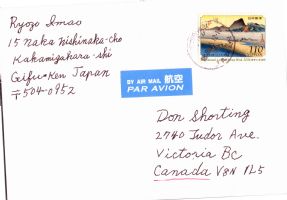 Ryozo Imao
15 Naka Nishinaka-cho
Kakamigahara-shi
Gifu-Ken Japan
〒504-0952
110
BY AIR MAIL 航空
PAR AVION
Don Shorting
2740 Tudor Ave.
Victoria BC
Canada V8N 1L5